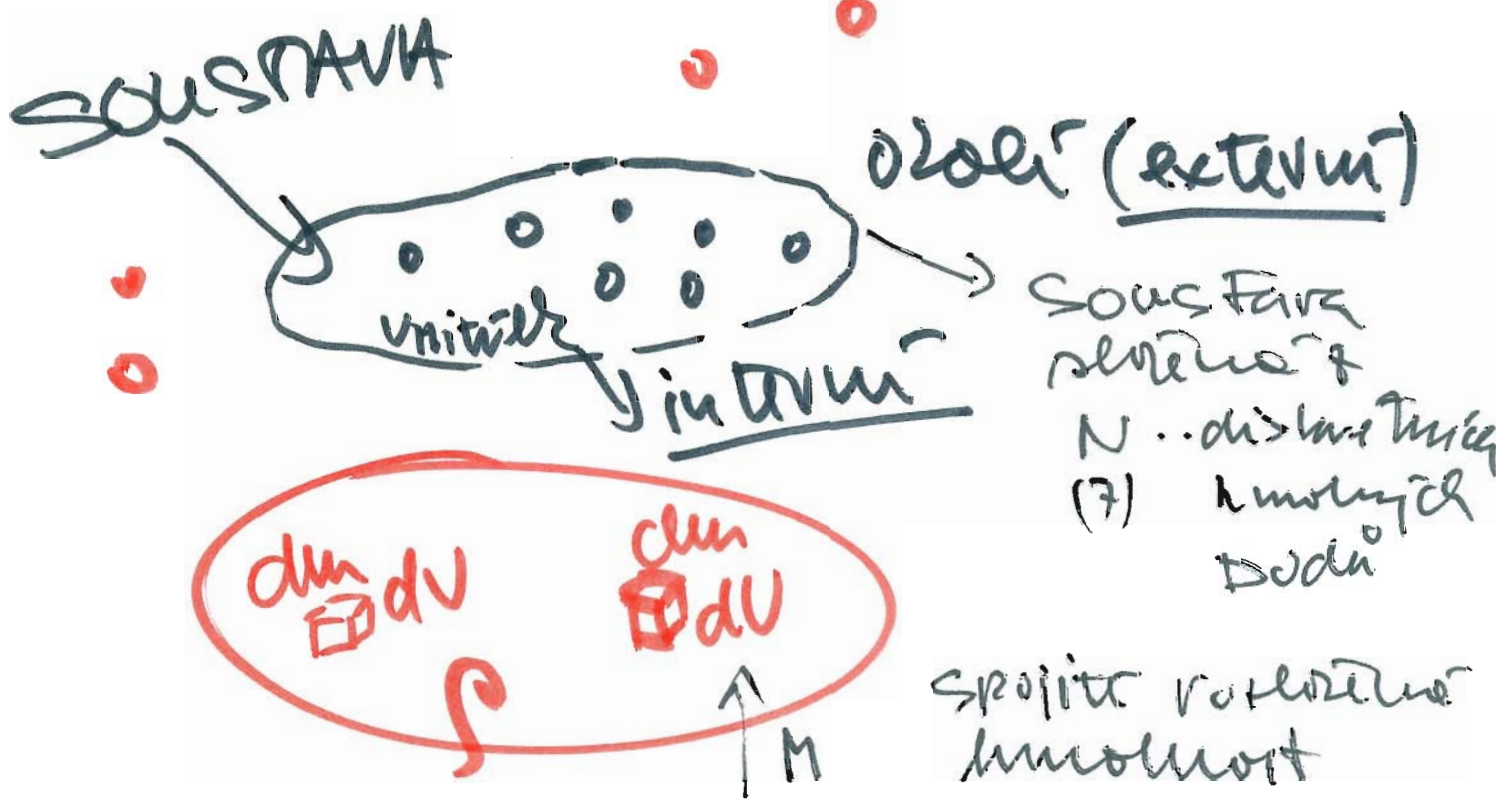 SOUSTAVA
okolí (externí)
vnitřek
interní
Soustava
složená z
N .. diskrétních
(7) hmotných
bodů
dm dV
dm
dV
ρ
M
spojitě rozložená
hmotnost